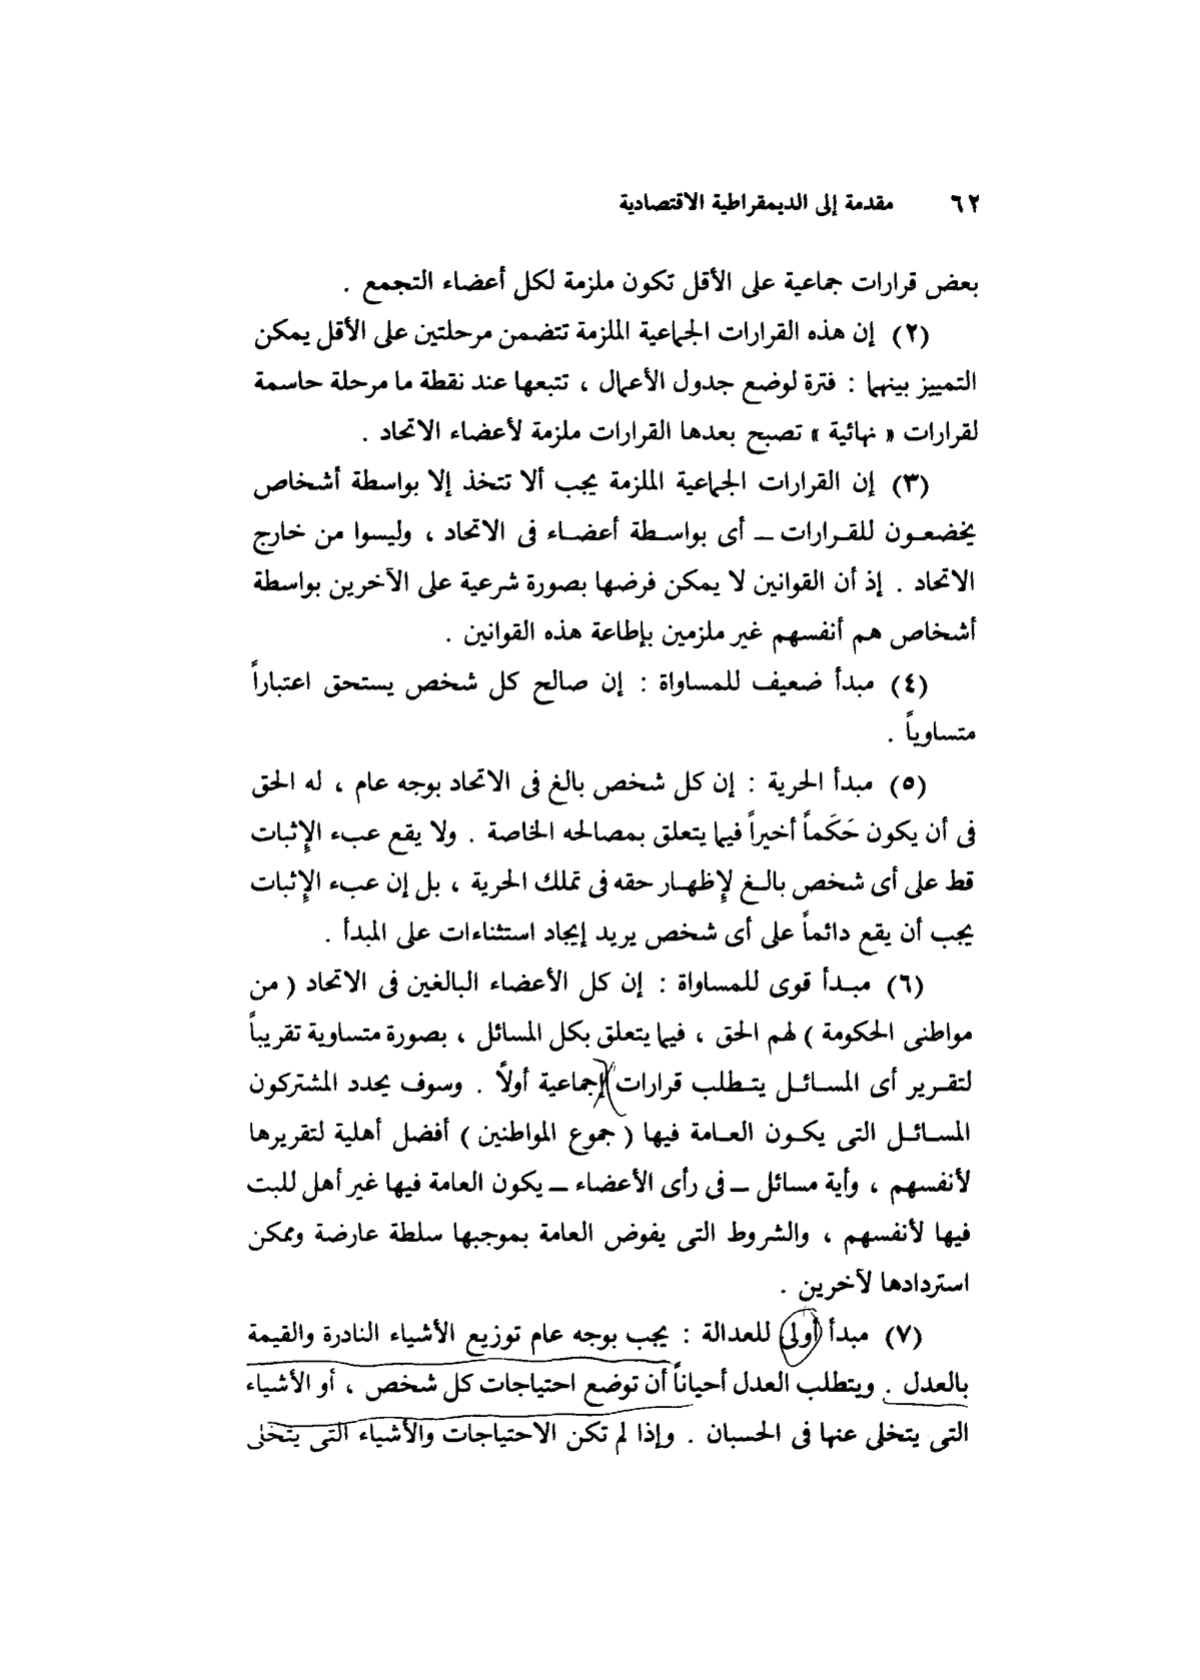 ٦٢ مقدمة إلى الديمقراطية الاقتصادية
بعض قرارات جماعية على الأقل تكون ملزمة لكل أعضاء التجمع .
(٢) إن هذه القرارات الجماعية الملزمة تتضمن مرحلتين على الأقل يمكن
التمييز بينهما : فترة لوضع جدول الأعمال ، تتبعها عند نقطة ما مرحلة حاسمة
لقرارات « نهائية » تصبح بعدها القرارات ملزمة لأعضاء الاتحاد .
(٣) إن القرارات الجماعية الملزمة يجب ألا تتخذ إلا بواسطة أشخاص
يخضعون للقرارات ــ أى بواسطة أعضاء فى الاتحاد ، وليسوا من خارج
الاتحاد . إذ أن القوانين لا يمكن فرضها بصورة شرعية على الآخرين بواسطة
أشخاص هم أنفسهم غير ملزمين بإطاعة هذه القوانين .
(٤) مبدأ ضعيف للمساواة : إن صالح كل شخص يستحق اعتباراً
متساوياً .
(٥) مبدأ الحرية : إن كل شخص بالغ فى الاتحاد بوجه عام ، له الحق
فى أن يكون حَكَماً أخيراً فيما يتعلق بمصالحه الخاصة . ولا يقع عبء الإثبات
قط على أى شخص بالغ لإظهار حقه فى تملك الحرية ، بل إن عبء الإثبات
يجب أن يقع دائماً على أى شخص يريد إيجاد استثناءات على المبدأ .
(٦) مبدأ قوى للمساواة : إن كل الأعضاء البالغين فى الاتحاد ( من
مواطنى الحكومة ) لهم الحق ، فيما يتعلق بكل المسائل ، بصورة متساوية تقريباً
لتقرير أى المسائل يتطلب قرارات إجماعية أولاً . وسوف يحدد المشتركون
المسائل التى يكون العامة فيها ( جموع المواطنين ) أفضل أهلية لتقريرها
لأنفسهم ، وأية مسائل ــ فى رأى الأعضاء ــ يكون العامة فيها غير أهل للبت
فيها لأنفسهم ، والشروط التى يفوض العامة بموجبها سلطة عارضة وممكن
استردادها لآخرين .
(٧) مبدأ أولى للعدالة : يجب بوجه عام توزيع الأشياء النادرة والقيمة
بالعدل . ويتطلب العدل أحياناً أن توضع احتياجات كل شخص ، أو الأشياء
التى يتخلى عنها فى الحسبان . وإذا لم تكن الاحتياجات والأشياء التى يتخلى